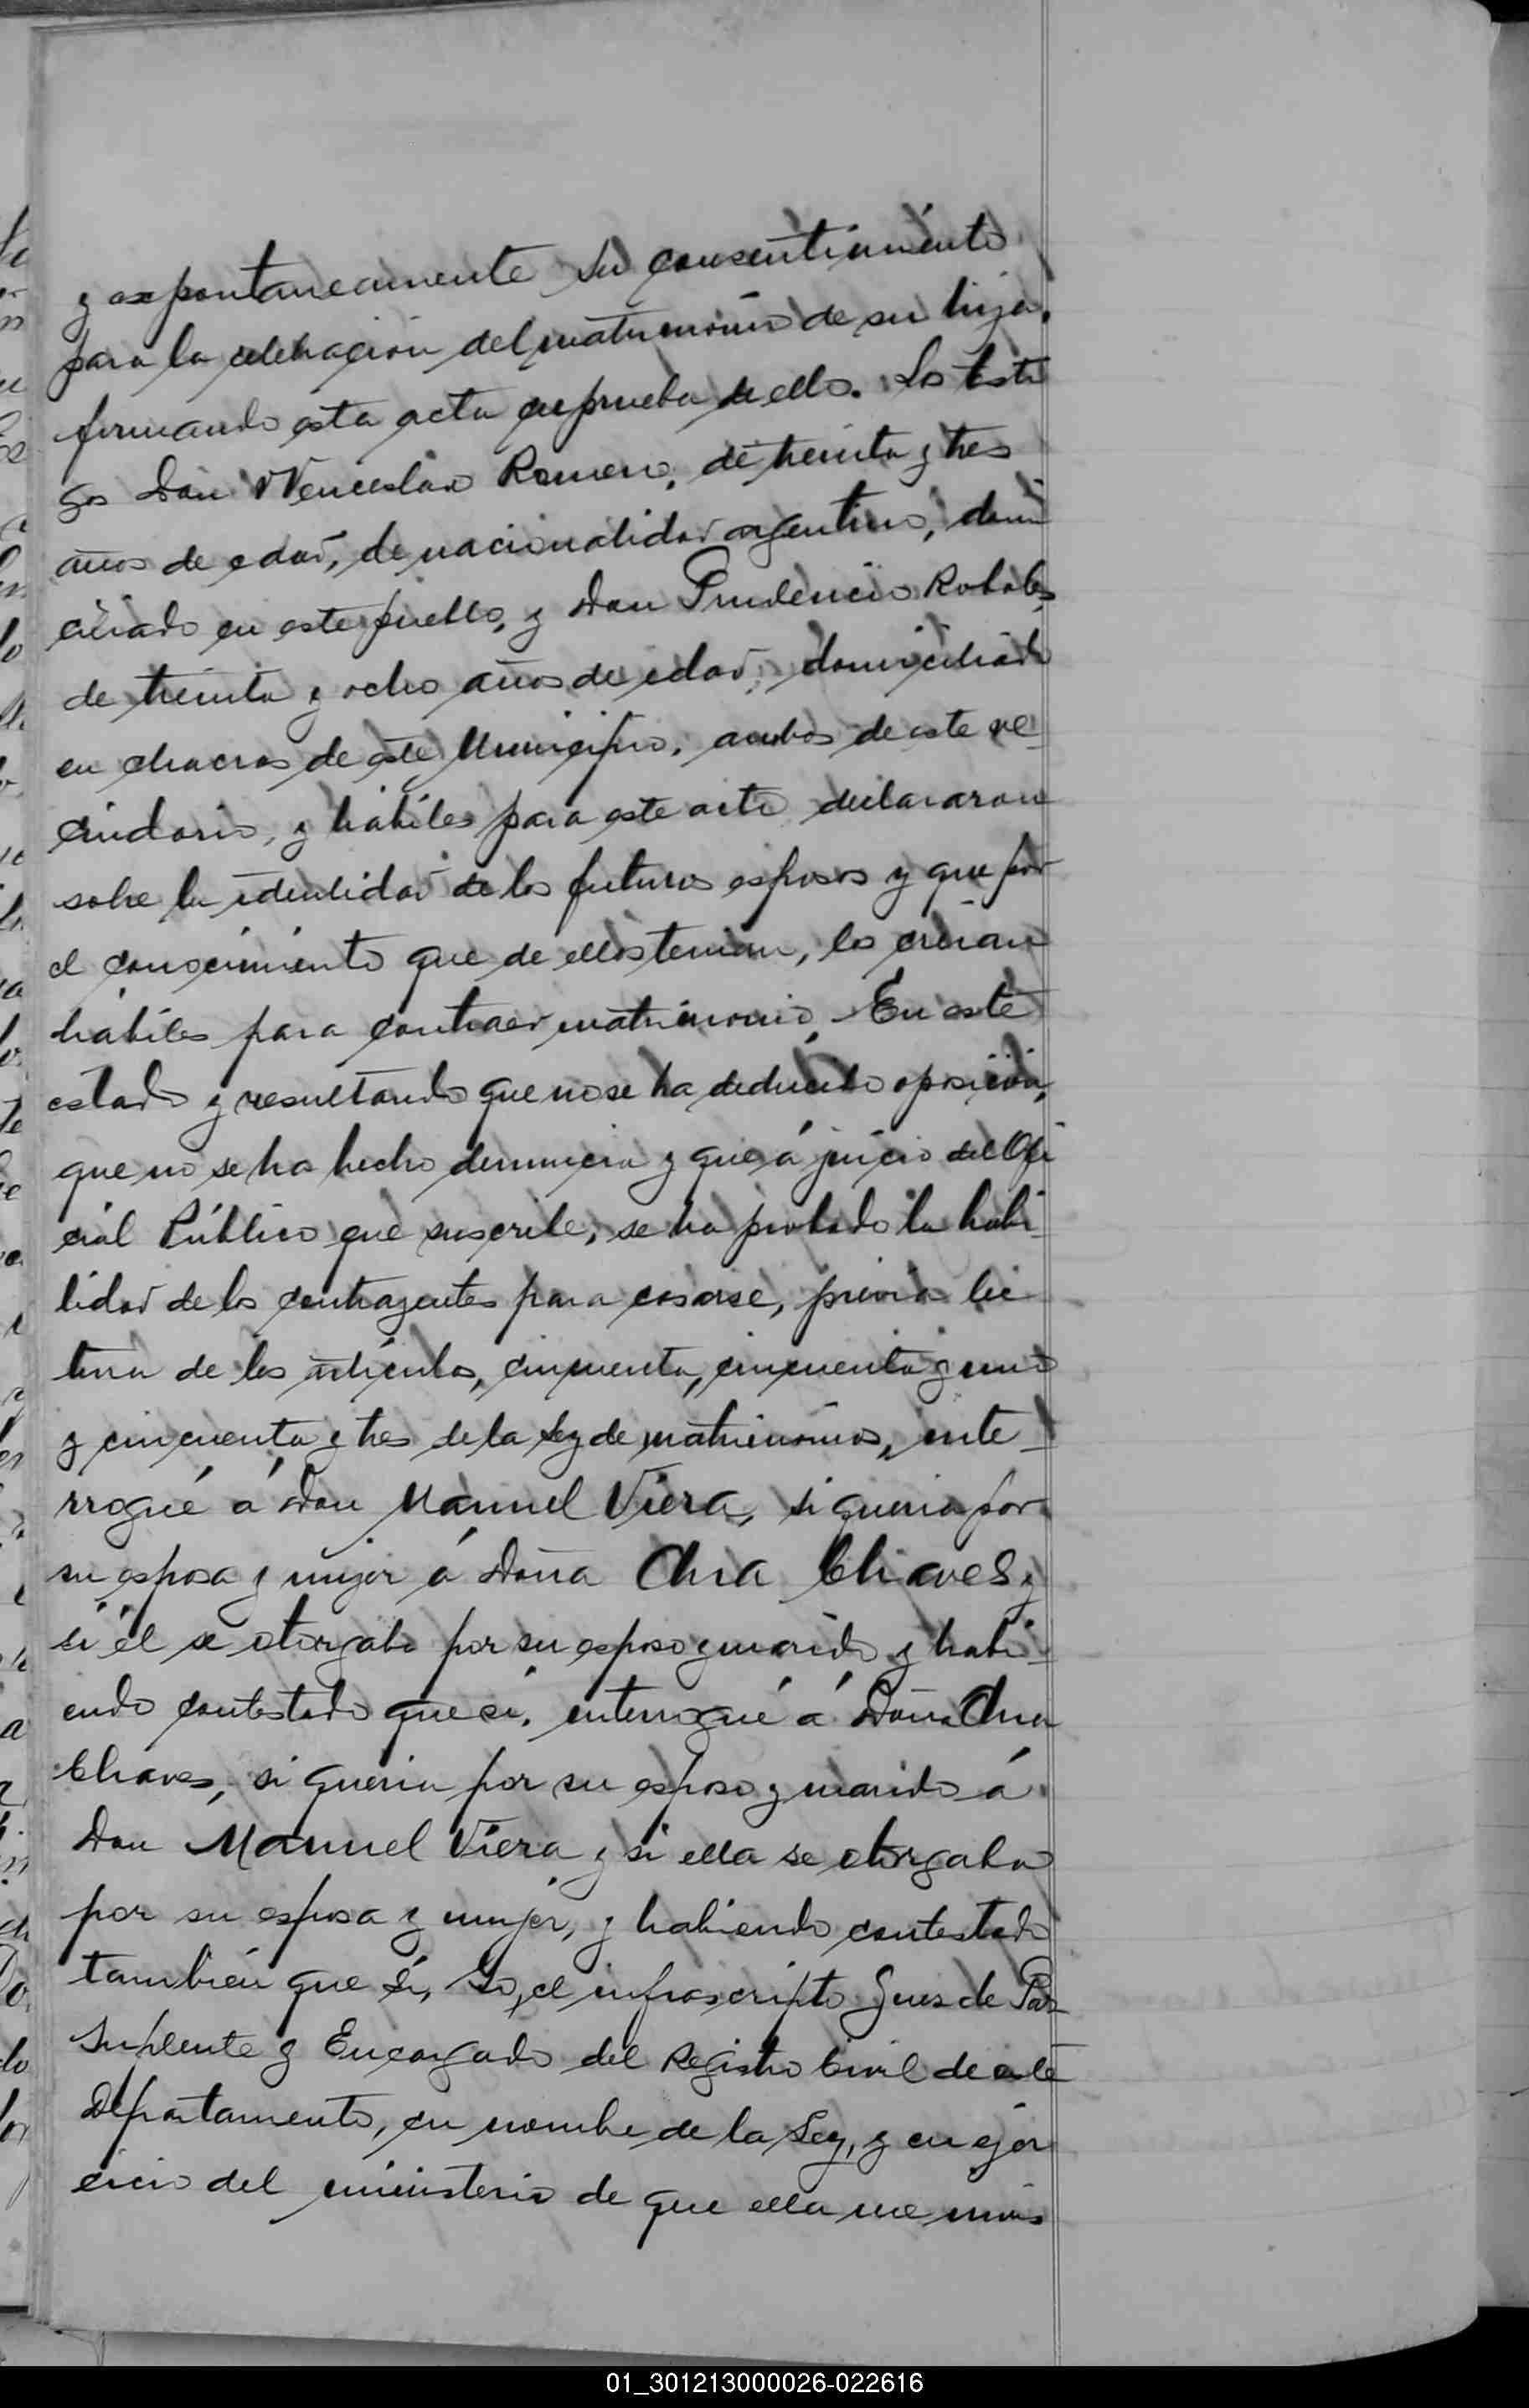 y expontaneamente su consentimiento
para la celebración del matrimonio de su hija,
firmando esta acta en prueba de ello. Los testi
gos Don Wenceslao Romero, de treinta y tres
años de edad, de nacionalidad argentino, domi
ciliado en este pueblo, y Don Prudencio Robales,
de treinta y ocho años de edad, domiciliado
en chacras de este Municipio, ambos de este ve_
cindario, y hábiles para este acto declararon
sobre la identidad de los futuros esposos y que por
el conocimiento que de ellos tenian, los creían
hábiles para contraer matrimonio. En este
estado y resultando que no se ha deducido oposición,
que no se ha hecho denuncia y que á juicio del Ofi
cial Público que suscribe, se ha probado la habi_
lidad de los contrayentes para casarse, previa lec
tura de los artículos, cincuenta, cincuenta y uno
y cincuenta y tres de la Ley de matrimonios, inte_
rrogué á Don Manuel Viera, si queria por
su esposa y mujer á Doña Clara Chaves y
si él se otorgaba por su esposo y marido y habi_
endo contestado que sí, interrogué á Doña Clara
Chaves, si queria por su esposo y marido á
Don Manuel Viera y si ella se otorgaba
por su esposa y mujer, y habiendo contestado
también que sí, Yo, el infrascripto Juez de Paz
Suplente y Encargado del Registro Civil de este
Departamento, en nombre de la Ley, y en ejer
cicio del ministerio de que ella me invis
01_301213000026-022616